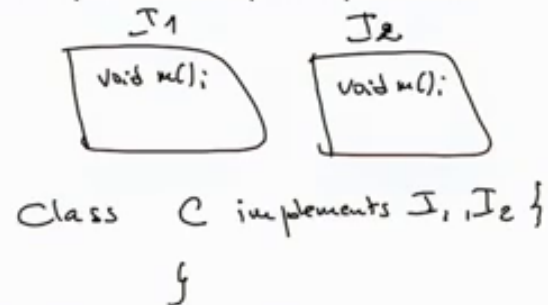 I1 I2
void m(); void m();
Class C implements I1, I2 {
}